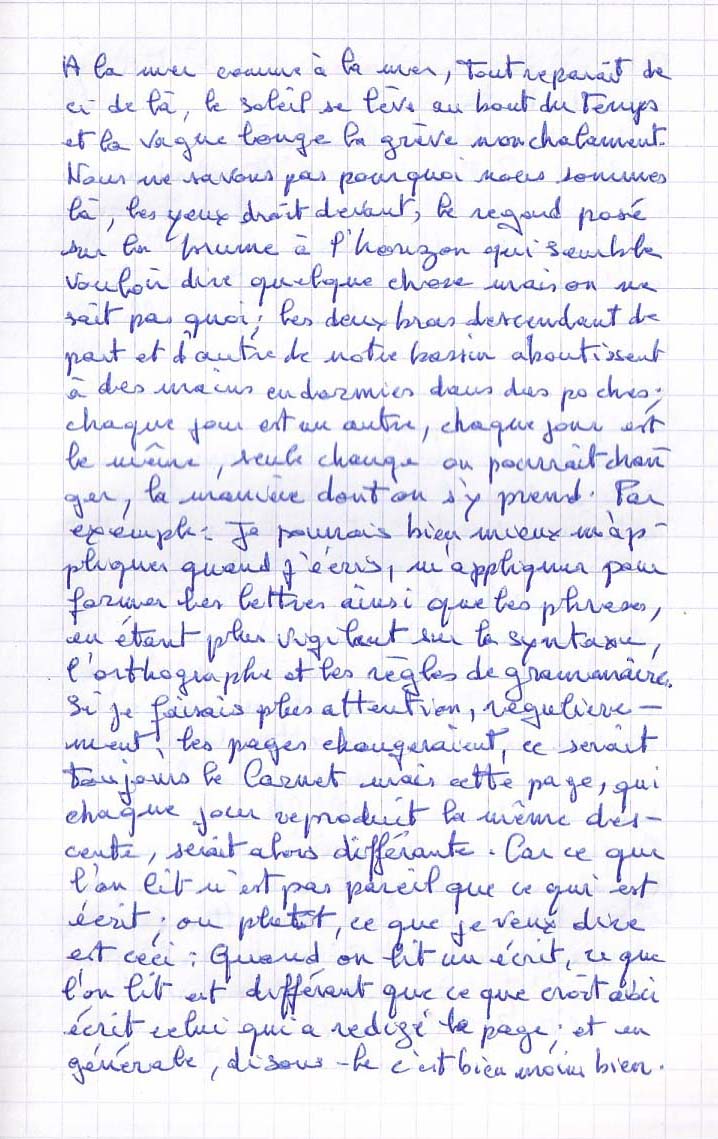 A la mer comme à la mer, Tout reparaît de
ci de là, le soleil se lève au bout du Temps
et la vague longe la grève nonchalament.
Nous ne savons pas pourquoi nous sommes
là, les yeux droit devant, le regard posé
sur la brume à l'horizon qui semble
vouloir dire quelque chose mais on ne
sait pas quoi; les deux bras descendant de
part et d'autre de notre bassin aboutissent
à des mains endormies dans des poches;
chaque jour est un autre, chaque jour est
le même, seule change ou pourrait chan
ger, la manière dont on s'y prend. Par
exemple: Je pourrais bien mieux m'ap-
pliquer quand j'écris, m'appliquer pour
former les lettres ainsi que les phrases,
en étant plus vigilant sur la syntaxe,
l'orthographe et les règles de grammaire.
Si je faisais plus attention, régulière-
ment, les pages changeraient, ce serait
toujours le Carnet mais cette page, qui
chaque jour reproduit la même des-
cente, serait alors différante. Car ce que
l'on lit n'est pas pareil que ce qui est
écrit; ou plutôt, ce que je veux dire
est ceci: Quand on lit un écrit, ce que
l'on lit est différant que ce que croît
écrit celui qui a redigé la page; et en
générale, disons-le c'est bien moins bien.